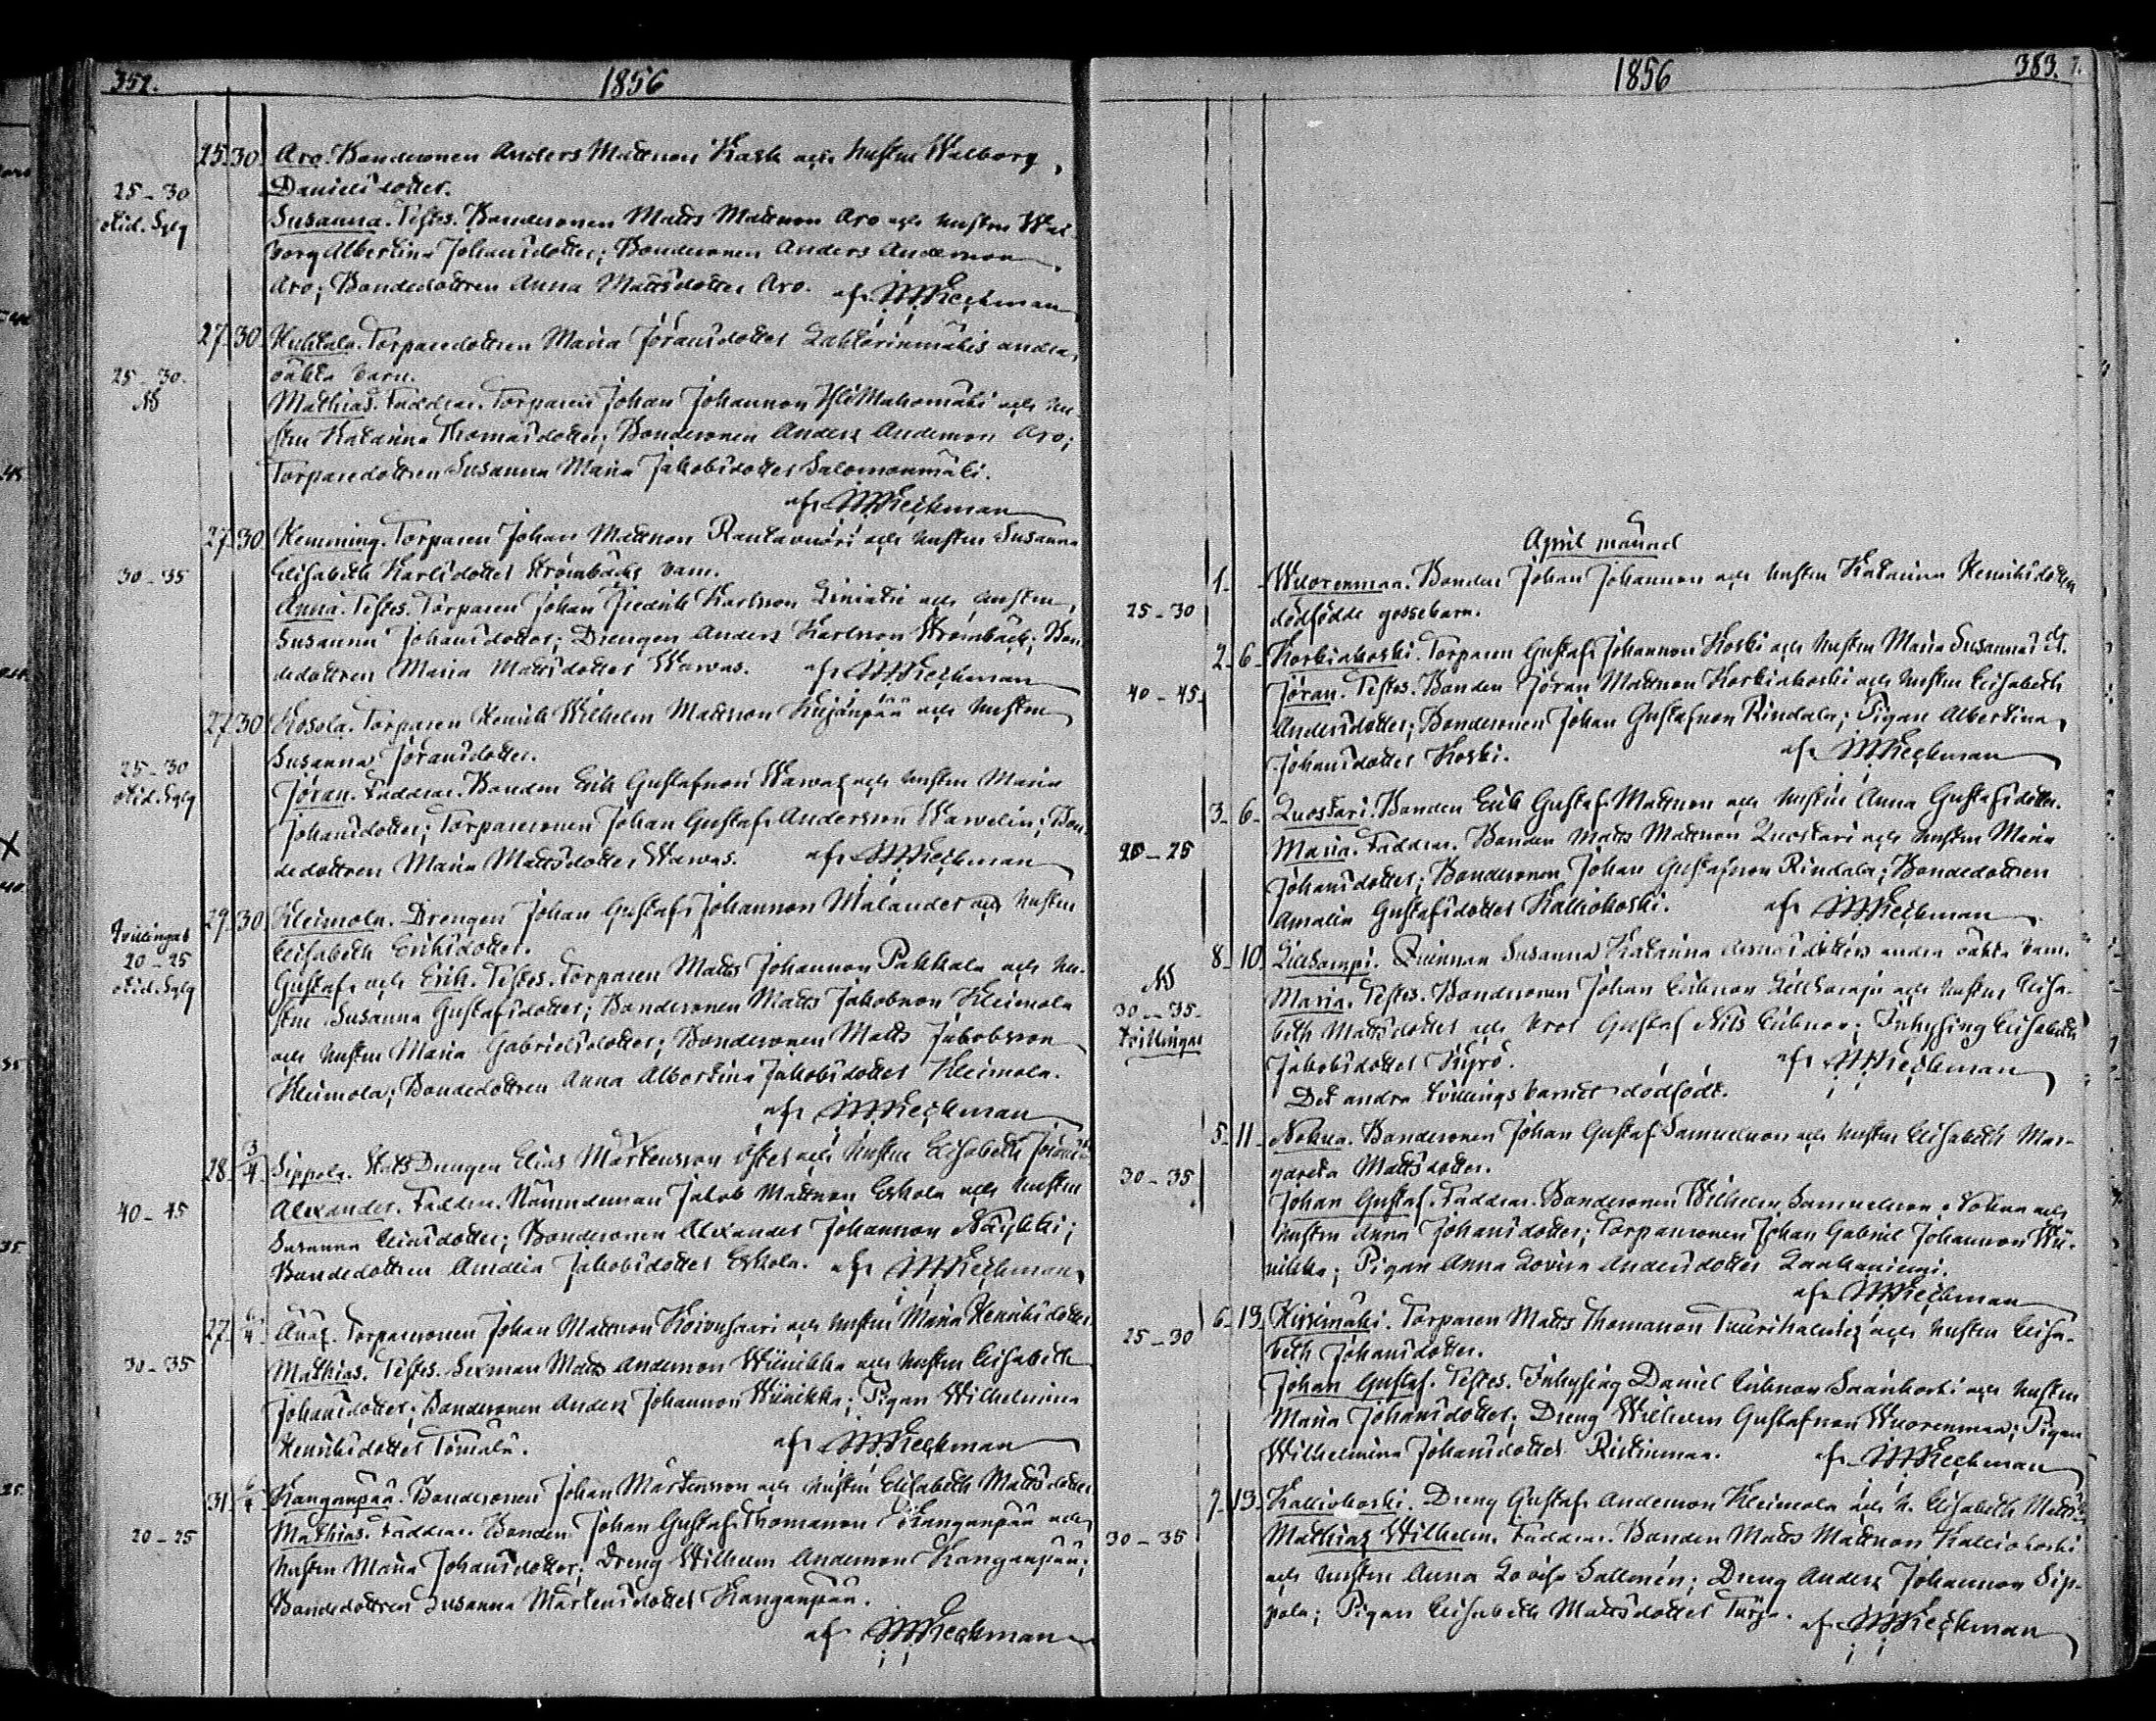 352.
1856
25. 30. Aro. Bondesonen Anders Mattsson Kask och hustru Walborg
25-30 Danielsdotter.
Susanna. Testes. Bondesonen Matts Mattsson Aro och hustru Wal-
borg Albertina Johansdotter; Bondesonen Anders Andersson
Aro; Bondedottren Anna Mattsdotter Aro. af Keckman
27. 30 Huhtala. Torparedottren Maria Jöransdotter andra
25-30. oäkta barn.
Mathias. Faddrar. Torparen Johan Johansson och hu-
stru Katarina Thomasdotter; Bondesonen Anders Andersson Aro;
Torparedottren Susanna Maria Jakobsdotter Salomonmäki.
af Keckman
27. 30 Hemming. Torparen Johan Mattsson Rantavuori och hustru Susanna
30-35 Elisabeth Karlsdotter Strömbäcks barn.
Anna. Testes. Torparen Johan Fredrik Karlsson och hustru
Susanna Johansdotter; Drengen Anders Karlsson Strömbäck; Bon-
dedottren Maria Mattsdotter Warvas. af Keckman
27. 30 Kosola. Torparen Henrik Wilhelm Mattsson Kujanpää och hustru
25-30 Susanna Jöransdotter.
Jöran. Faddrar. Bonden Erik Gustafsson Warvas och hustru Maria
Johansdotter; Torparesonen Johan Gustaf Andersson Warvelin; Bon-
dedottren Maria Mattsdotter Warvas. af Keckman
29. 30 Kleimola. Drengen Johan Gustaf Johansson Malander och hustru
Tvillingar
20-25 Elisabeth Eriksdotter.
Gustaf och Erik. Testes. Torparen Matts Johansson Pakkala och hu-
stru Susanna Gustafsdotter; Bondesonen Matts Jakobsson Kleimola
och hustru Maria Gabrielsdotter; Bondesonen Matts Jakobsson
Kleimola; Bondedottren Anna Albertina Jakobsdotter Kleimola.
af Keckman
28. 3/4 Sippola. Drengen Elias Mårtensson och hustru Elisabeth
40-45 Alexander. Faddrar. Nämndeman Jakob Mattsson Eskola och hustru
Susanna Eliasdotter; Bondesonen Alexander Johansson
Bondedottren Amalia Jakobsdotter Eskola. af Keckman
27. 6/4 Torparesonen Johan Mattsson Koivusaari och hustru Maria Henriksdotter
30-35 Mathias. Testes. Sexman Matts Andersson Wiinikka och hustru Elisabeth
Johansdotter; Bondesonen Anders Johansson Wiinikka; Pigan Wilhelmina
Henriksdotter Tomala. af Keckman
31. 6/4 Kanganpää. Bondesonen Johan Mårtensson och hustru Elisabeth Mattsdotter
20-25 Mathias. Faddrar. Bonden Johan Gustaf Thomasson Kanganpää och
hustru Maria Johansdotter; Dreng Wilhelm Andersson Kanganpää;
Bondedottren Susanna Mårtensdotter Kanganpää.
af Keckman
1856
383.
April månad
1. Wuorenmaa. Bonden Johan Johansson och hustru Katarina Henriksdotter
25-30 dödfödde gossebarn.
2. 6. Korkiakoski. Torparen Gustaf Johansson Koski och hustru Maria Susanna
40-45 Jöran. Testes. Bonden Jöran Mattsson Korkiakoski och hustru Elisabeth
Andersdotter; Bondesonen Johan Gustafsson Rindala; Pigan Albertina
Johansdotter Koski. af Keckman
3. 6. Luostari. Bonden Erik Gustaf Mattsson och hustru Anna Gustafsdotter.
20-25 Maria. Faddrar. Bonden Matts Mattsson Luostari och hustru Maria
Johansdotter; Bondesonen Johan Gustafsson Rindala; Bondedottren
Amalia Gustafsdotter Kalliokoski. af Keckman
8. 10. Qvinnan Susanna Katarina andra oäkta barn.
30-35. Maria. Testes. Bondesonen Johan Eriksson och hustru Elisa-
Tvillingar beth Mattsdotter och bror Gustaf Nils Eriksson; Inhysing Elisabeth
Jakobsdotter Kyrö. af Keckman
Det andra tvillingsbarnet dödfödt.
5. 11. Nokua. Bondesonen Johan Gustaf Samuelsson och hustru Elisabeth Mar-
30-35 gareta Mattsdotter.
Johan Gustaf. Faddrar. Bondesonen Wilhelm Samuelsson Nokua och
hustru Anna Johansdotter; Torparesonen Johan Gabriel Johansson Wii-
nikka; Pigan Anna Lovisa Andersdotter
af Keckman
6. 13. Hissimäki. Torparen Matts Thomasson och hustru Elisa-
25-30 beth Johansdotter.
Johan Gustaf. Testes. Inhysing Daniel Eriksson och hustru
Maria Johansdotter; Dreng Wilhelm Gustafsson Wuorenmaa; Pigan
Wilhelmina Johansdotter Ristinmaa. af Keckman
7. 13. Kalliokoski. Dreng Gustaf Andersson Kleimola och h. Elisabeth Matts
30-35 Mathias Wilhelm. Faddrar. Bonden Matts Mattsson Kalliokoski
och hustru Anna Lovisa Sallmén; Dreng Anders Johansson Sip-
pola; Pigan Elisabeth Mattsdotter af Keckman